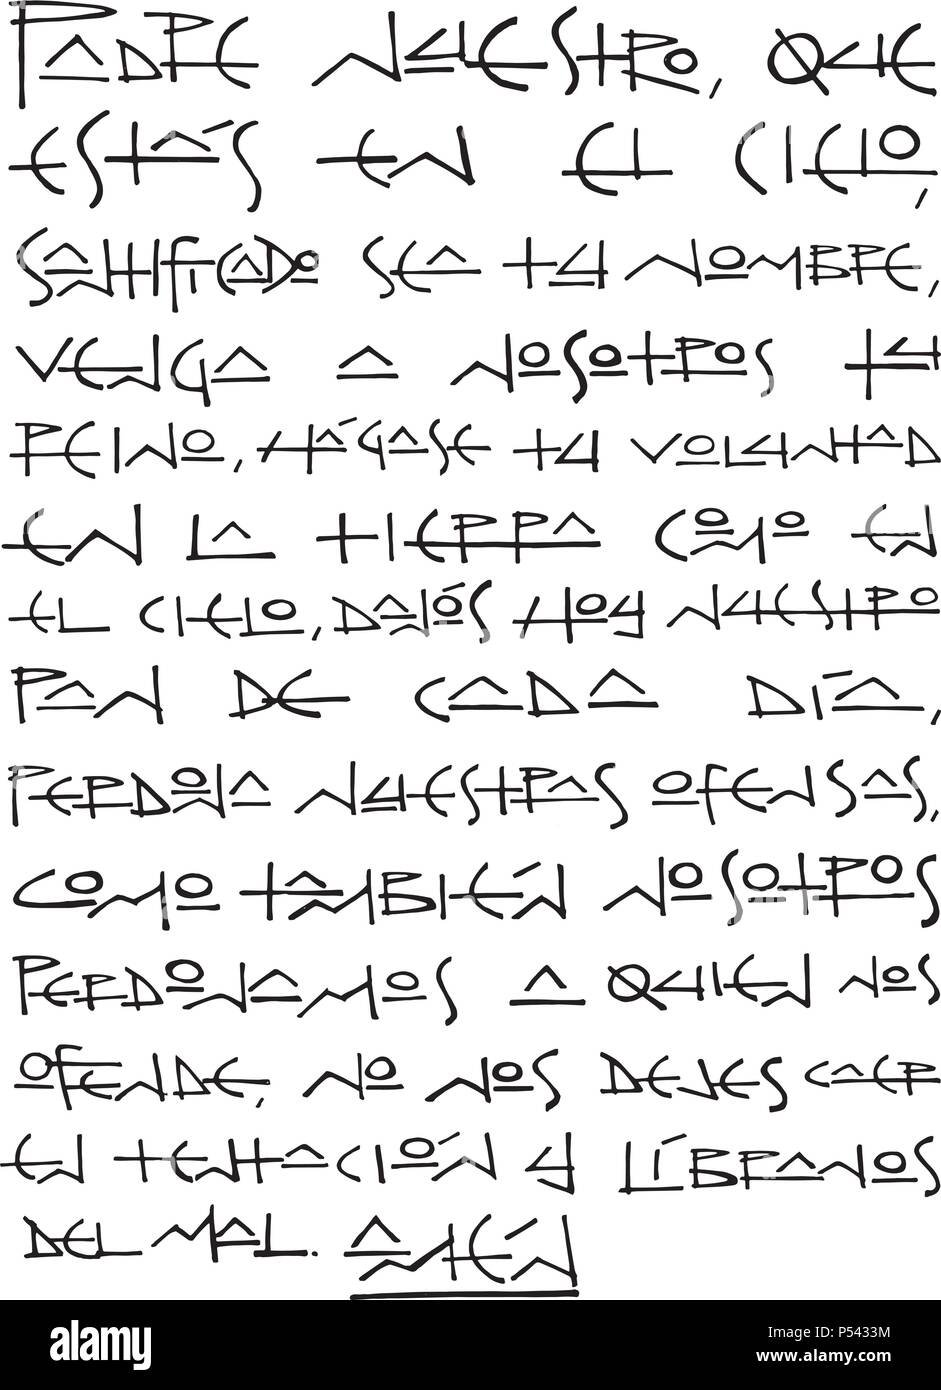 PADRE NUESTRO, QUE
ESTÁS EN EL CIELO,
SANTIFICADO SEA TU NOMBRE,
VENGA A NOSOTROS TU
REINO, HÁGASE TU VOLUNTAD
EN LA TIERRA COMO EN
EL CIELO, DANÓS HOY NUESTRO
PAN DE CADA DÍA,
PERDONA NUESTRAS OFENSAS,
COMO TAMBIÉN NOSOTROS
PERDONAMOS A QUIEN NOS
OFENDE, NO NOS DEJES CAER
EN TENTACIÓN Y LÍBRANOS
DEL MAL. AMÉN
alamy
Image ID: P5433M
www.alamy.com